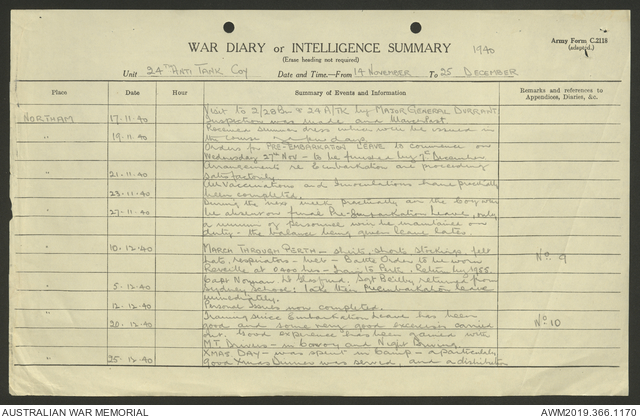 WAR DIARY or INTELLIGENCE SUMMARY 1940
Army Form C.2118
(adapted.)
(Erase heading not required)
Unit 24TH ANTI TANK COY Date and Time—From 14 NOVEMBER To 25 DECEMBER
Place Date Hour Summary of Events and Information Remarks and references to
Appendices, Diaries, &c.
Visit to 2/28 Bn & 24 A/TK by MAJOR GENERAL DURRANT
NORTHAM 17.11.40 Inspection was made and
" 19.11.40 Summer dress which will be issued in
the course days
Orders for PRE-EMBARKATION LEAVE to commence on
Wednesday 27th Nov - to be finished by 9th December
" 21.11.40 Arrangements re Embarkation are proceeding
satisfactorily
" 23.11.40 All Vaccinations and Innoculations have practically
been completed.
" 27.11.40 During the next week practically all the Coy will
be absent on final Pre-Embarkation Leave, only
a minimum of personnel will be maintained on
duty - the balance being given leave later
" 10.12.40 MARCH THROUGH PERTH - shirts, shorts, stockings, felt
hats, respirators - Battle Order to be worn No 9
Reveille at 0400 hrs - Train to Perth. Return by 1955.
" 5.12.40 Capt Norman Lt Sgt Reilly returned from
Sydney School; take their Preembarkation Leave
immediately.
" 12.12.40 Personal Issues now completed.
" 20.12.40 Training since Embarkation Leave has been No 10
good and some very good exercises carried
out. Good experience has been gained with
M.T. Drivers - in Convoy and Night Driving.
" 25.12.40 XMAS DAY - was spent in Camp - a particularly
good Xmas Dinner was served, and a distribution
AUSTRALIAN WAR MEMORIAL
AWM2019.366.1170